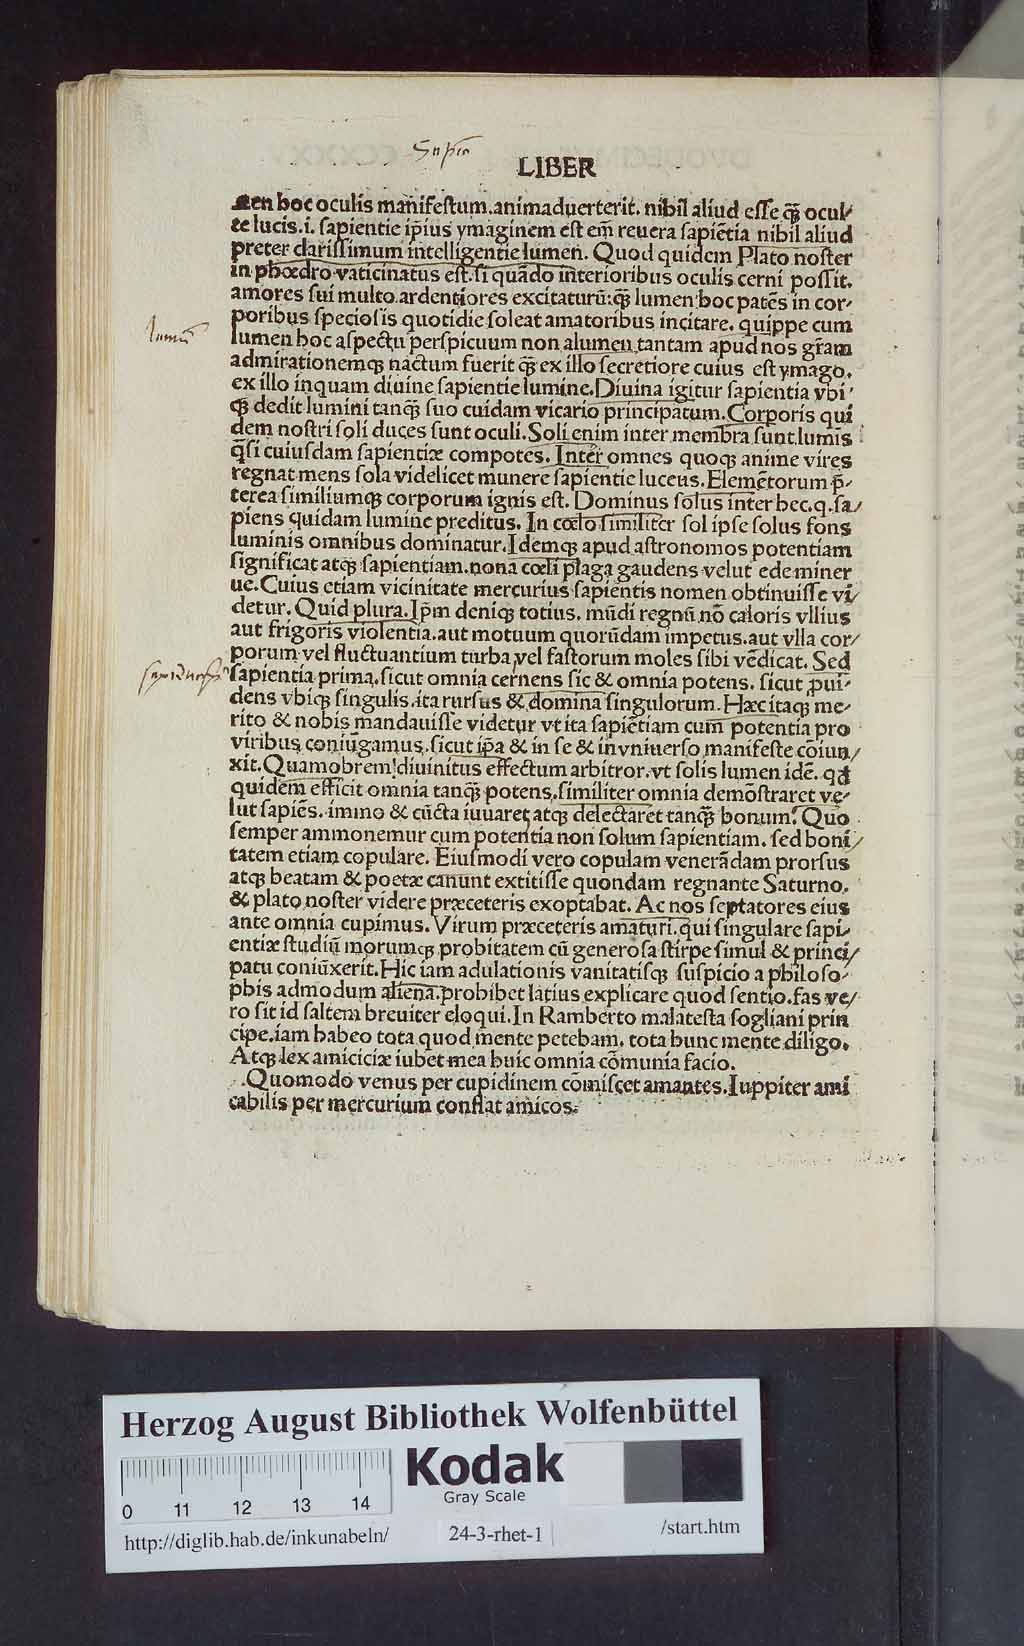 Sapia
LIBER
men hoc oculis manifestum.animaduerterit. nihil aliud esse q̃ ocul-
te lucis.i. sapientie ip̄ius ymaginem est em̄ reuera sapiētia nihil aliud
preter clarissimum intelligentie lumen. Quod quidem Plato noster
in phœdro vaticinatus est.si quādo interioribus oculis cerni possit.
amores sui multo ardentiores excitaturū:q̃ lumen hoc patēs in cor-
poribus speciosis quotidie soleat amatoribus incitare. quippe cum
lumen
lumen hoc aspectu perspicuum non alumen tantam apud nos gr̄am
admirationemq; nactum fuerit q̃ ex illo secretiore cuius est ymago.
ex illo inquam diuine sapientie lumine.Diuina igitur sapientia vbi-
q; dedit lumini tanq̃ suo cuidam vicario principatum. Corporis qui
dem nostri soli duces sunt oculi. Soli enim inter membra sunt lumīs
q̄si cuiusdam sapientiæ compotes. Inter omnes quoq; anime vires
regnat mens sola videlicet munere sapientie lucens. Elemētorum p̄-
terea similiumq; corporum ignis est. Dominus solus inter hec.q.sa/
piens quidam lumine preditus. In cœlo similiter sol ipse solus fons
luminis omnibus dominatur.Idemq; apud astronomos potentiam
significat atq; sapientiam.nona cœli plaga gaudens velut ede miner
ue. Cuius etiam vicinitate mercurius sapientis nomen obtinuisse vi/
detur. Quid plura. Ip̄m deniq; totius. mūdi regnū nō caloris vllius
aut frigoris violentia.aut motuum quorūdam impetus.aut vlla cor/
porum vel fluctuantium turba vel fastorum moles sibi vēdicat. Sed
sapientia prima.sicut omnia cernens sic & omnia potens. sicut ꝓui-
dens vbiq; singulis.ita rursus & domina singulorum. Hæc itaq; me-
rito & nobis mandauisse videtur vt ita sapiētiam cum potentia pro
viribus coniūgamus.sicut ip̄a & in se & in vniuerso manifeste cōiun/
xit. Quamobrem diuinitus effectum arbitror.vt solis lumen idē. qd
quidem efficit omnia tanq̃ potens.similiter omnia demōstraret ve-
lut sapiēs. immo & cūcta iuuaret atq; delectaret tanq̃ bonum. Quo
semper ammonemur cum potentia non solum sapientiam. sed boni/
tatem etiam copulare. Eiusmodi vero copulam venerādam prorsus
atq; beatam & poetæ canunt extitisse quondam regnante Saturno.
& plato noster videre præceteris exoptabat. Ac nos septatores eius
ante omnia cupimus. Virum præceteris amaturi.qui singulare sapi-
entiæ studiū morumq; probitatem cū generosa stirpe simul & princi/
patu coniūxerit. Hic iam adulationis vanitatisq; suspicio a philoso-
phis admodum aliena.prohibet latius explicare quod sentio.fas ve/
ro sit id saltem breuiter eloqui. In Ramberto malatesta sogliani prin
cipe.iam habeo tota quod mente petebam. tota hunc mente diligo.
Atq; lex amiciciæ iubet mea huic omnia cōmunia facio.
Quomodo venus per cupidinem comiscet amantes.Iuppiter ami
cabilis per mercurium conflat amicos.
Herzog August Bibliothek Wolfenbüttel
0 11 12 13 14
Kodak
Gray Scale
http://diglib.hab.de/inkunabeln/ 24-3-rhet-1 /start.htm